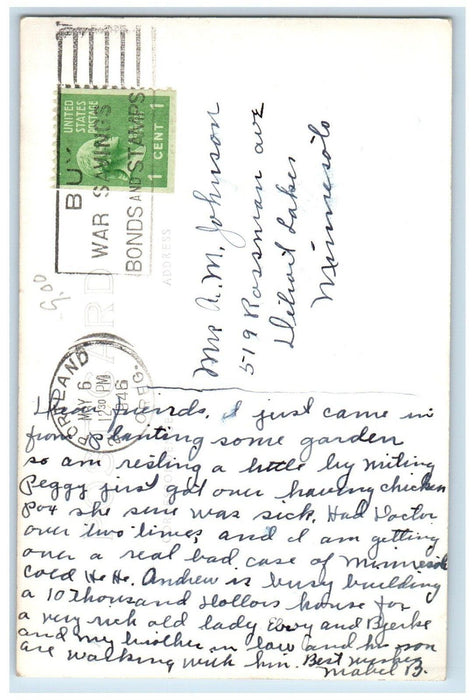 BUY
WAR SAVINGS
BONDS AND STAMPS
UNITED
STATES
POSTAGE
1 CENT 1
ADDRESS
Mrs A. M. Johnson
519 Rossman ave
Detroit Lakes
Minnesota
PORTLAND
MAY 6
12 30 PM
1946
OREG.
Dear friends, I just came in
from Planting some garden
so am resting a little by writing
Peggy just got over having chicken
Pox she sure was sick. Had Doctor
over two times and I am getting
over a real bad case of Minnesota
cold He He. Andrew is busy building
a 10 Thousand Dollars house for
a very rich old lady Ebvy and Bjerke
and my brother in law and his son
are walking with him. Best wishes
Mabel B.